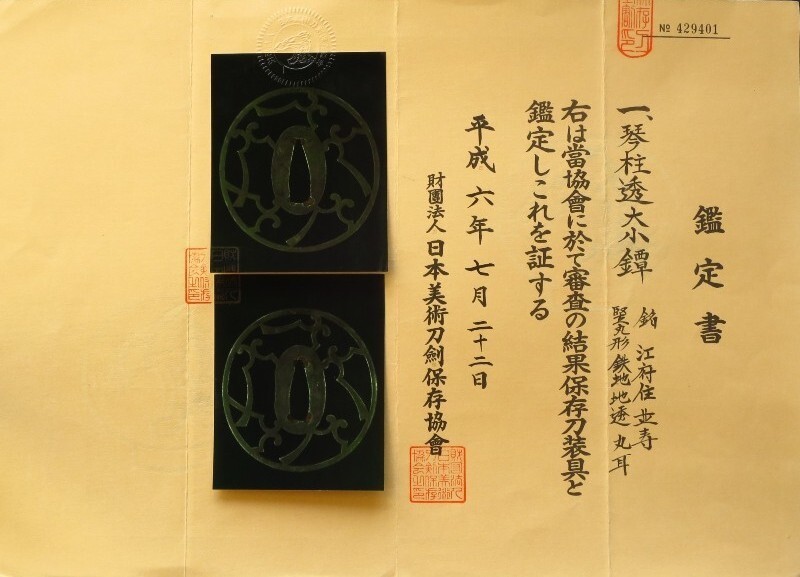 № 429401
鑑定書
一、琴柱透大小鐔
銘 江府住 正寿
竪丸形 鉄地 地透 丸耳
右は當協會に於て審査の結果保存刀装具と
鑑定しこれを証する
平成六年七月二十二日
財團法人 日本美術刀劍保存協會